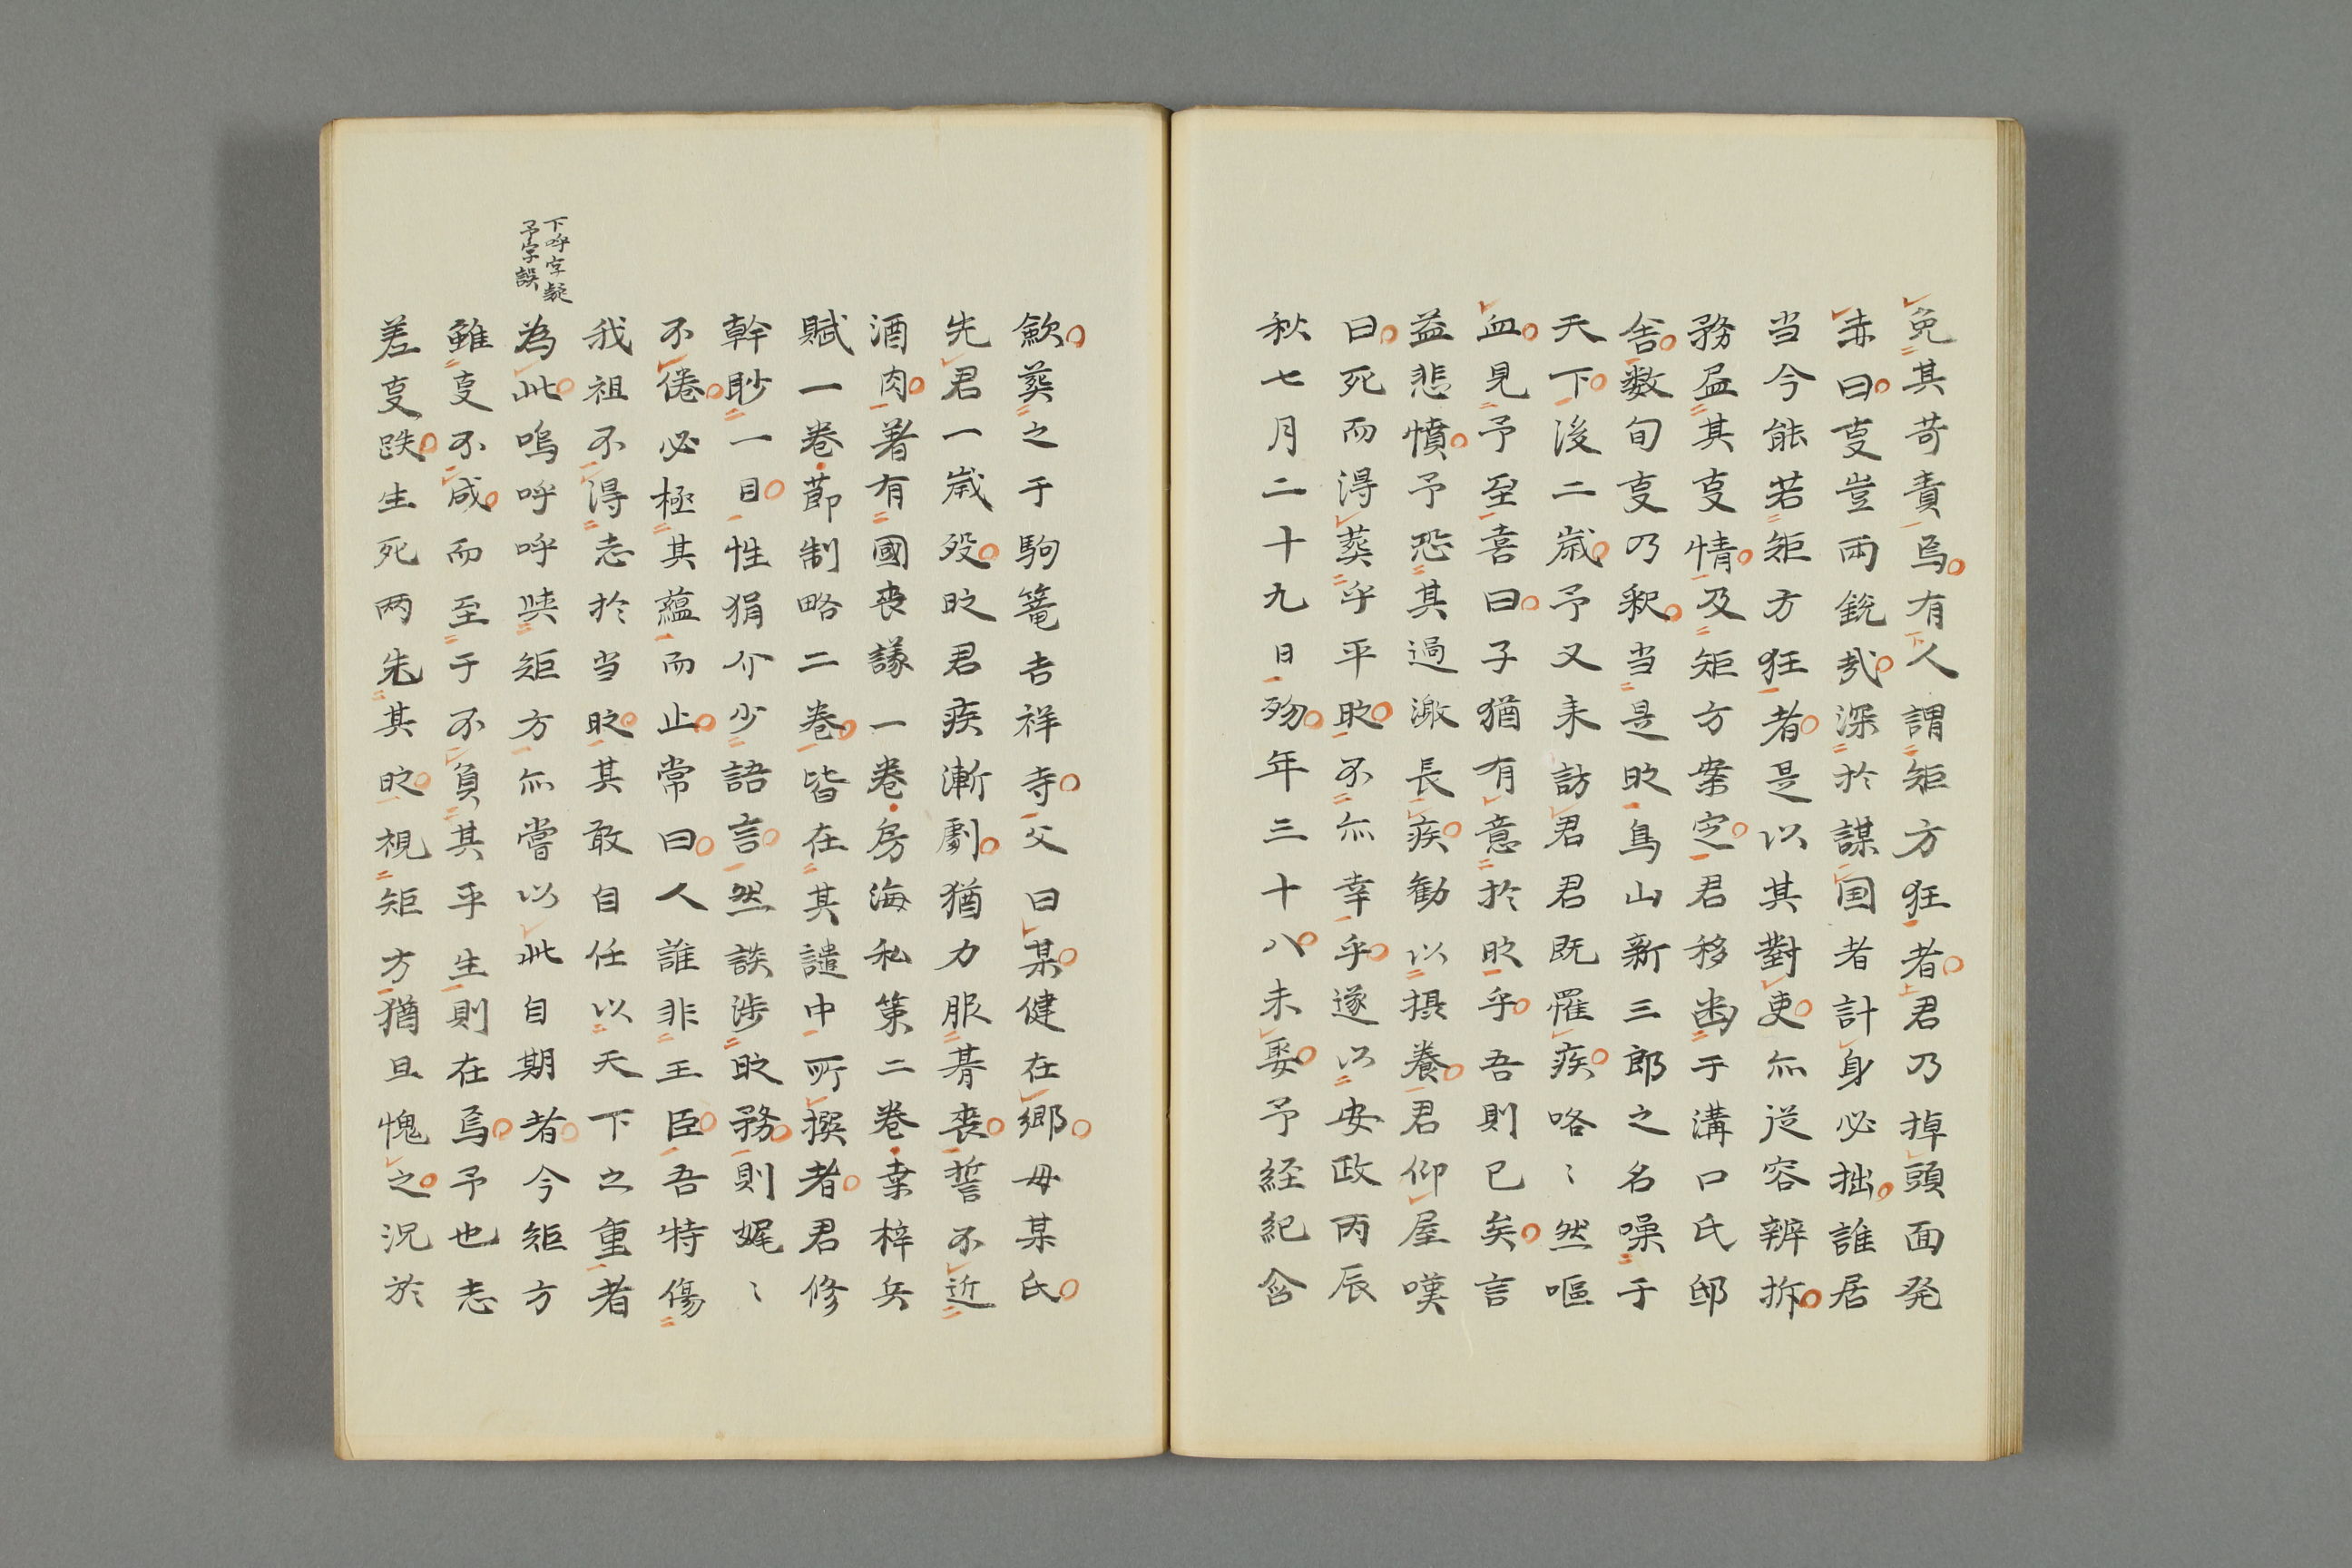 免其苛責焉有人謂矩方狂者君乃掉頭面発
赤曰㕝豈両銃哉深於謀国者計身必拙誰居
当今能若矩方狂者是以其對吏尓従容辨拆
務盈其㕝情及矩方案定君移凾于溝口氏邸
舎数旬㕝乃釈当是时鳥山新三郎之名噪于
天下後二歳予又来訪君君既罹疾咯〻然嘔
血見予至喜曰子猶有意於时乎吾則已矣言
益悲憤予恐其過激長疾勧以摂養君仰屋嘆
曰死而得葬乎平时不尓幸乎遂以安政丙辰
秋七月二十九日歿年三十八未娶予経紀含
歛葬之于駒篭吉祥寺父曰某健在郷母某氏
先君一歳歿时君疾漸劇猶力服朞喪誓不近
酒肉著有國喪議一巻房海私策二巻桒梓兵
賦一巻莭制略二巻皆在其譴中所撰者君修
幹眇一目性狷介少語言然談渉时務則娓〻
不倦必極其蘊而止常曰人誰非王臣吾特傷
我祖不得志於当时其敢自任以天下之重者
為此嗚呼呼與矩方尓嘗以此自期者今矩方
雖㕝不成而至于不負其平生則在焉予也志
差㕝跌生死两失其时視矩方猶且愧之況於
下呼字疑
予字誤